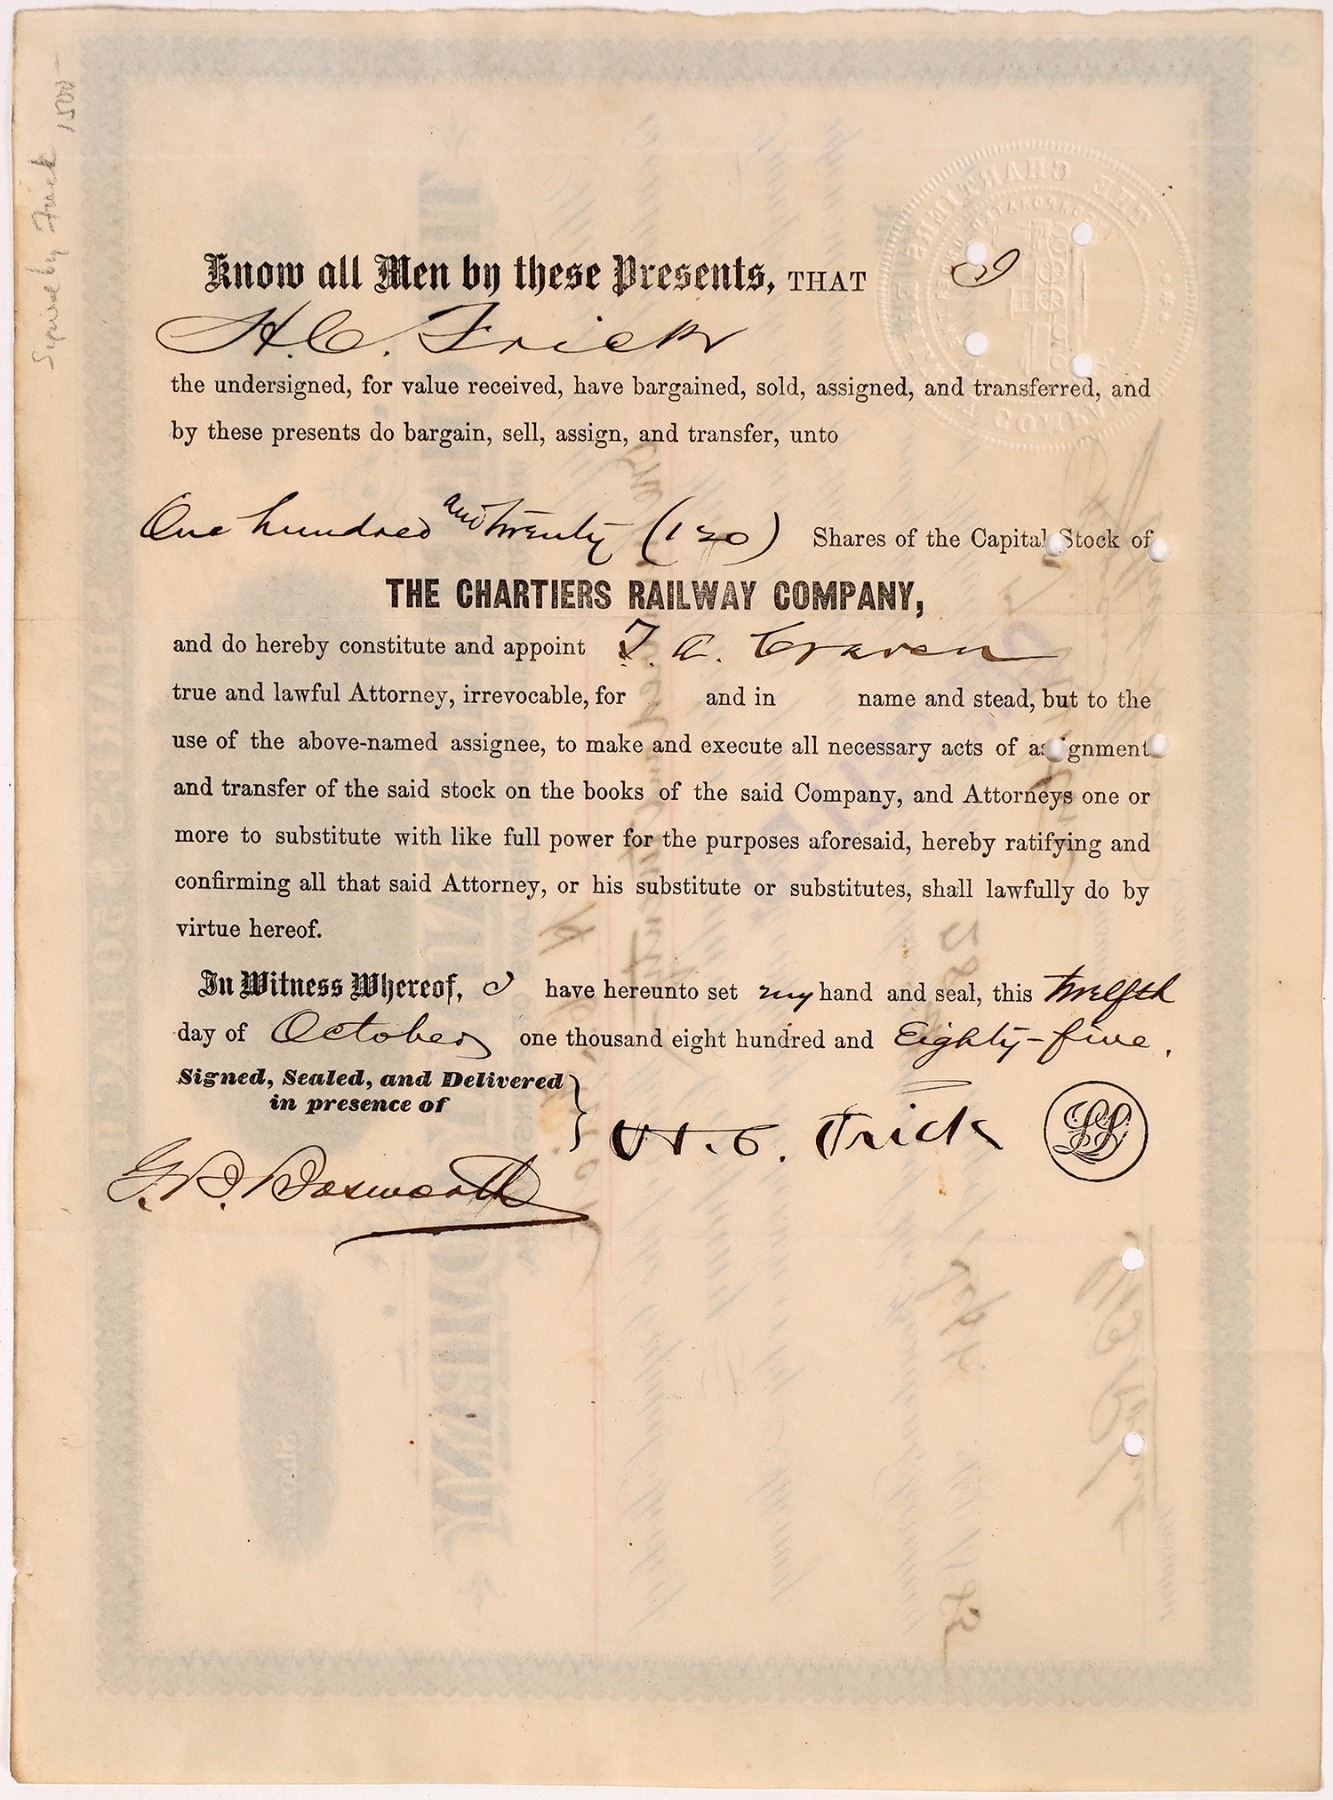 Signed by Frick 1500-
THE CHARTIERS
Know all Men by these Presents, THAT I
H. C. Frick
the undersigned, for value received, have bargained, sold, assigned, and transferred, and
by these presents do bargain, sell, assign, and transfer, unto
One hundred and twenty (120) Shares of the Capital Stock of
THE CHARTIERS RAILWAY COMPANY,
and do hereby constitute and appoint T. A. Craven
true and lawful Attorney, irrevocable, for and in name and stead, but to the
use of the above-named assignee, to make and execute all necessary acts of assignment
and transfer of the said stock on the books of the said Company, and Attorneys one or
more to substitute with like full power for the purposes aforesaid, hereby ratifying and
confirming all that said Attorney, or his substitute or substitutes, shall lawfully do by
virtue hereof.
In Witness Whereof, I have hereunto set my hand and seal, this twelfth
day of October one thousand eight hundred and Eighty-five.
Signed, Sealed, and Delivered
in presence of
H. C. Frick LS
G. B. Bosworth